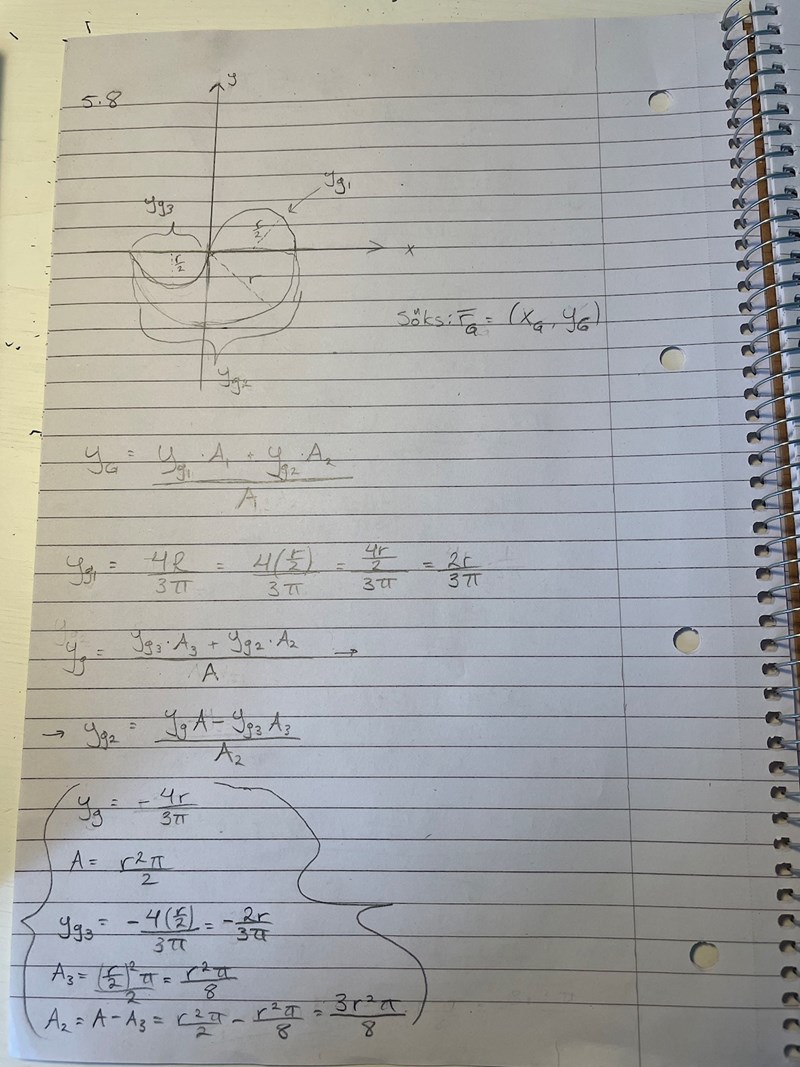 5.8
y
yg₁
yg₃
r/2
r/2
r
x
Söks: r̄_G = (x_G, y_G)
yg₂
y_G = (yg₁ · A₁ + yg₂ · A₂)/A
yg₁ = 4R/3π = 4(r/2)/3π = (4r/2)/3π = 2r/3π
yg = (yg₃ · A₃ + yg₂ · A₂)/A →
→ yg₂ = (yg A − yg₃ A₃)/A₂
yg = − 4r/3π
A = r²π/2
yg₃ = −4(r/2)/3π = − 2r/3π
A₃ = (r/2)²π/2 = r²π/8
A₂ = A − A₃ = r²π/2 − r²π/8 = 3r²π/8